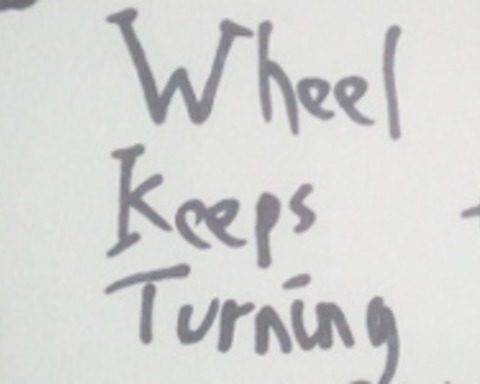 Wheel
Keeps
Turning